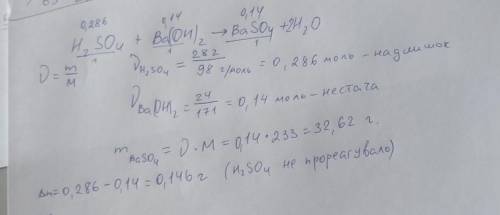 0,286 0,14 0,14
H₂SO₄ + Ba(OH)₂ → BaSO₄ + 2H₂O
1 1 1
D = m/M
D H₂SO₄ = 282/98 г/моль = 0,286 моль – надлишок
D Ba(OH)₂ = 24/171 = 0,14 моль – нестача
m BaSO₄ = D · M = 0,14 · 233 = 32,62 г.
Δm = 0,286 – 0,14 = 0,146 г (H₂SO₄ не прореагувало)